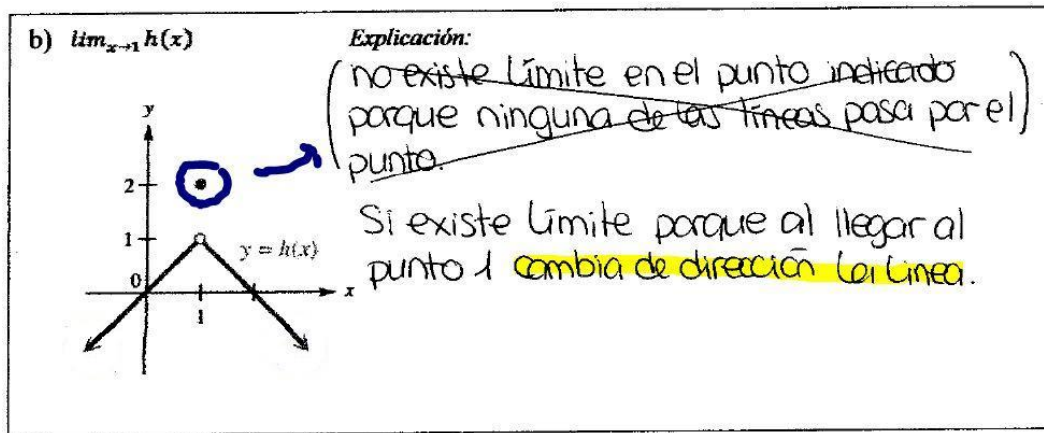 b) lim x→1 h(x)
Explicación:
(no existe límite en el punto indicado
porque ninguna de las líneas pasa por el)
punto.
Si existe límite porque al llegar al
punto 1 cambia de dirección la linea.
y
2
1
y = h(x)
0
x
1